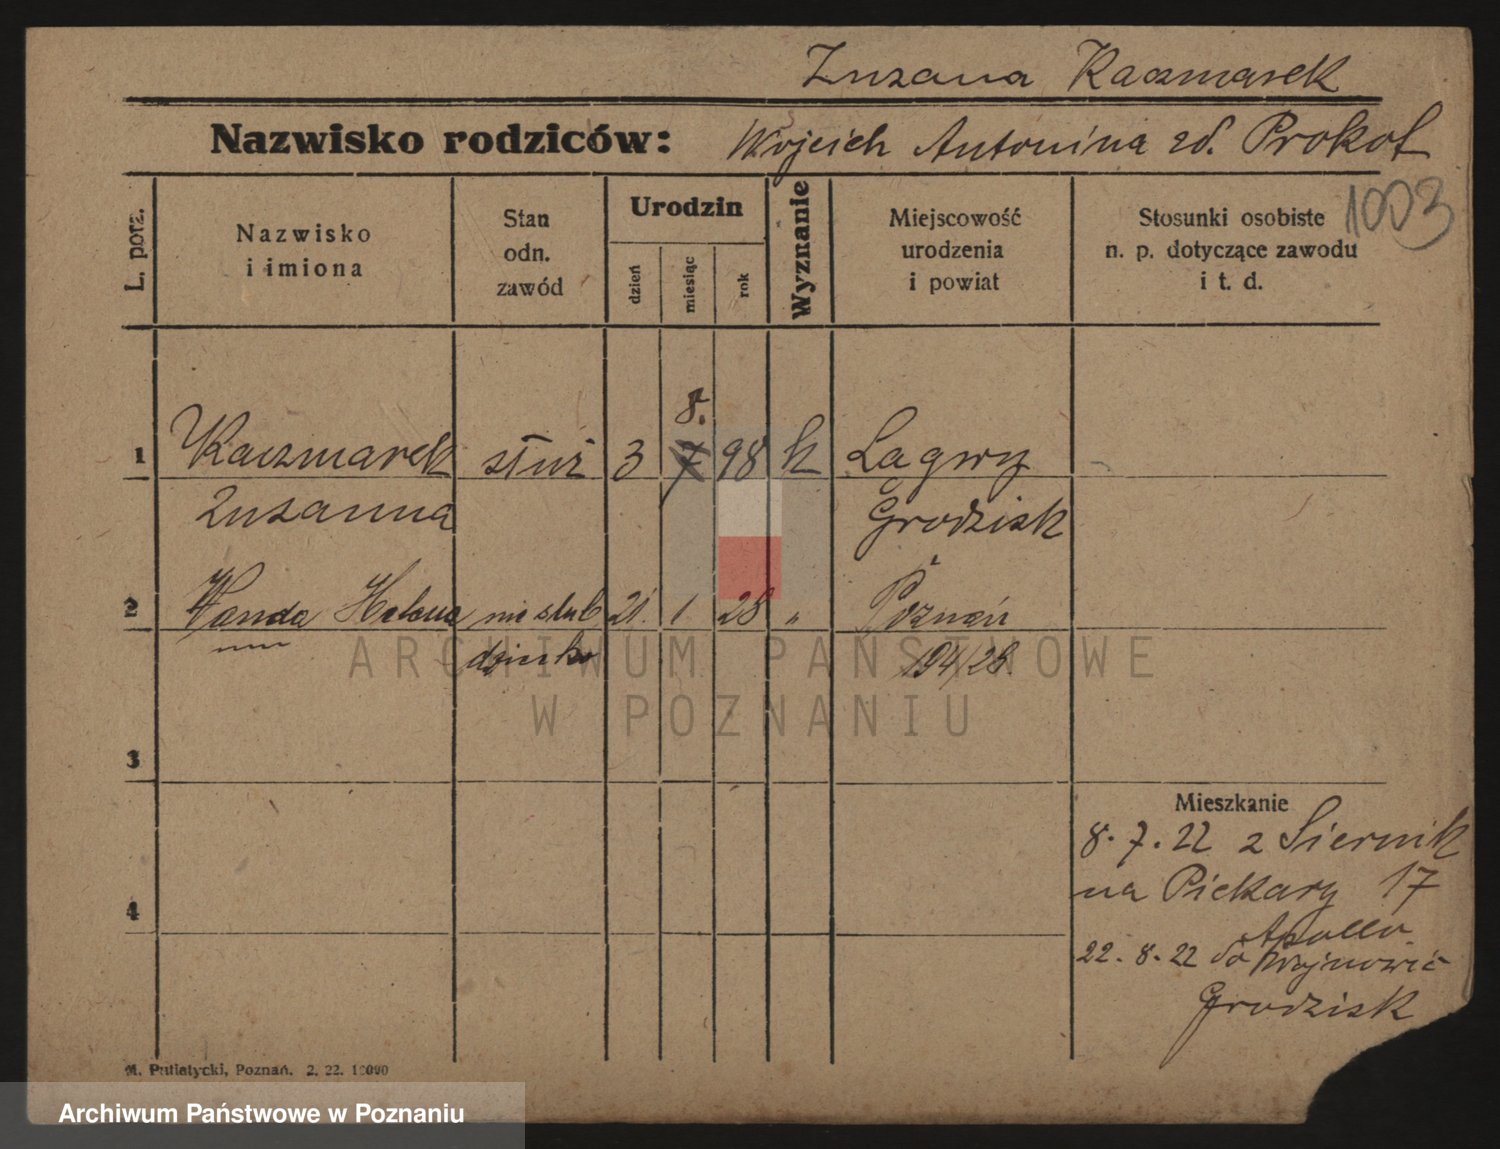 Zuzana Kaczmarek
Nazwisko rodziców: Wojciech Antonina zd. Prokof
1003
L. porz.
Nazwisko
i imiona
Stan
odn.
zawód
Urodzin
dzień
miesiąc
rok
Wyznanie
Miejscowość
urodzenia
i powiat
Stosunki osobiste
n. p. dotyczące zawodu
i t. d.
8.
1 Kaczmarek służ 3 7 98 k Łagwy
Zuzanna Grodzisk
2 Wanda Helena nieślub 21. 1. 28 " Poznań
dziecko 194/28.
ARCHIWUM PAŃSTWOWE
W POZNANIU
3
Mieszkanie
8.7.22 z Siernik
na Piekary 17
4
Apollo
22.8.22 do Wojnowic
Grodzisk
M. Putiatycki, Poznań. 2. 22. 10000
Archiwum Państwowe w Poznaniu